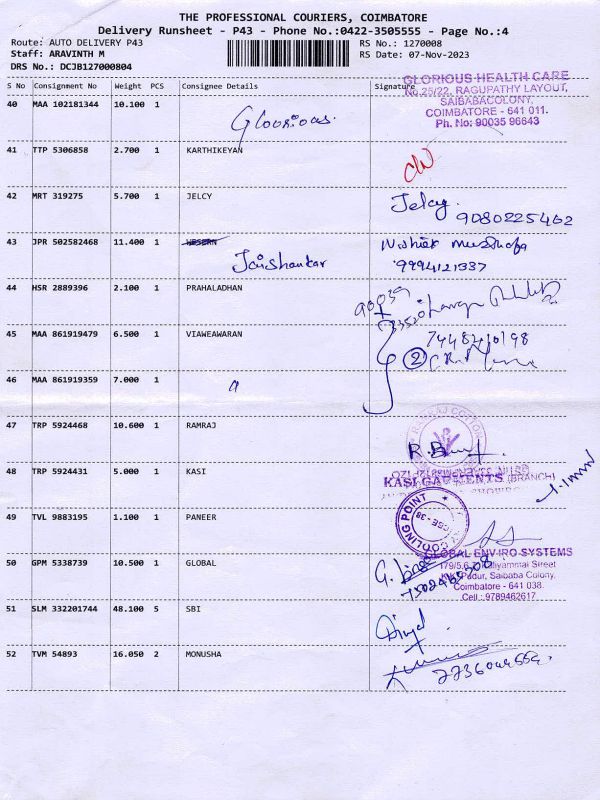 THE PROFESSIONAL COURIERS, COIMBATORE
Delivery Runsheet - P43 - Phone No.:0422-3505555 - Page No.:4
Route: AUTO DELIVERY P43
RS No.: 1270008
Staff: ARAVINTH M
RS Date: 07-Nov-2023
DRS No.: DCJB127000804
S No Consignment No Weight PCS Consignee Details Signature
GLORIOUS HEALTH CARE
No.25/22, RAGUPATHY LAYOUT,
SAIBABACOLONY,
COIMBATORE - 641 011.
Ph. No: 90035 96643
40 MAA 102181344 10.100 1 Gloorious.
41 TTP 5306858 2.700 1 KARTHIKEYAN
42 MRT 319275 5.700 1 JELCY Jelcy
9080225402
43 JPR 502582468 11.400 1 WESERN
Jaishankar
9994121337
44 HSR 2889396 2.100 1 PRAHALADHAN
45 MAA 861919479 6.500 1 VIAWEAWARAN
2
46 MAA 861919359 7.000 1
47 TRP 5924468 10.600 1 RAMRAJ
RAMRAJ COTTON
48 TRP 5924431 5.000 1 KASI
KASI GARMENTS (BRANCH)
49 TVL 9883195 1.100 1 PANEER
COOLING POINT
CBE-38
50 GPM 5338739 10.500 1 GLOBAL
GLOBAL ENVIRO SYSTEMS
Street
Pudur, Saibaba Colony,
Coimbatore - 641 038.
Cell : 9789462617
51 SLM 332201744 48.100 5 SBI
52 TVM 54893 16.050 2 MONUSHA